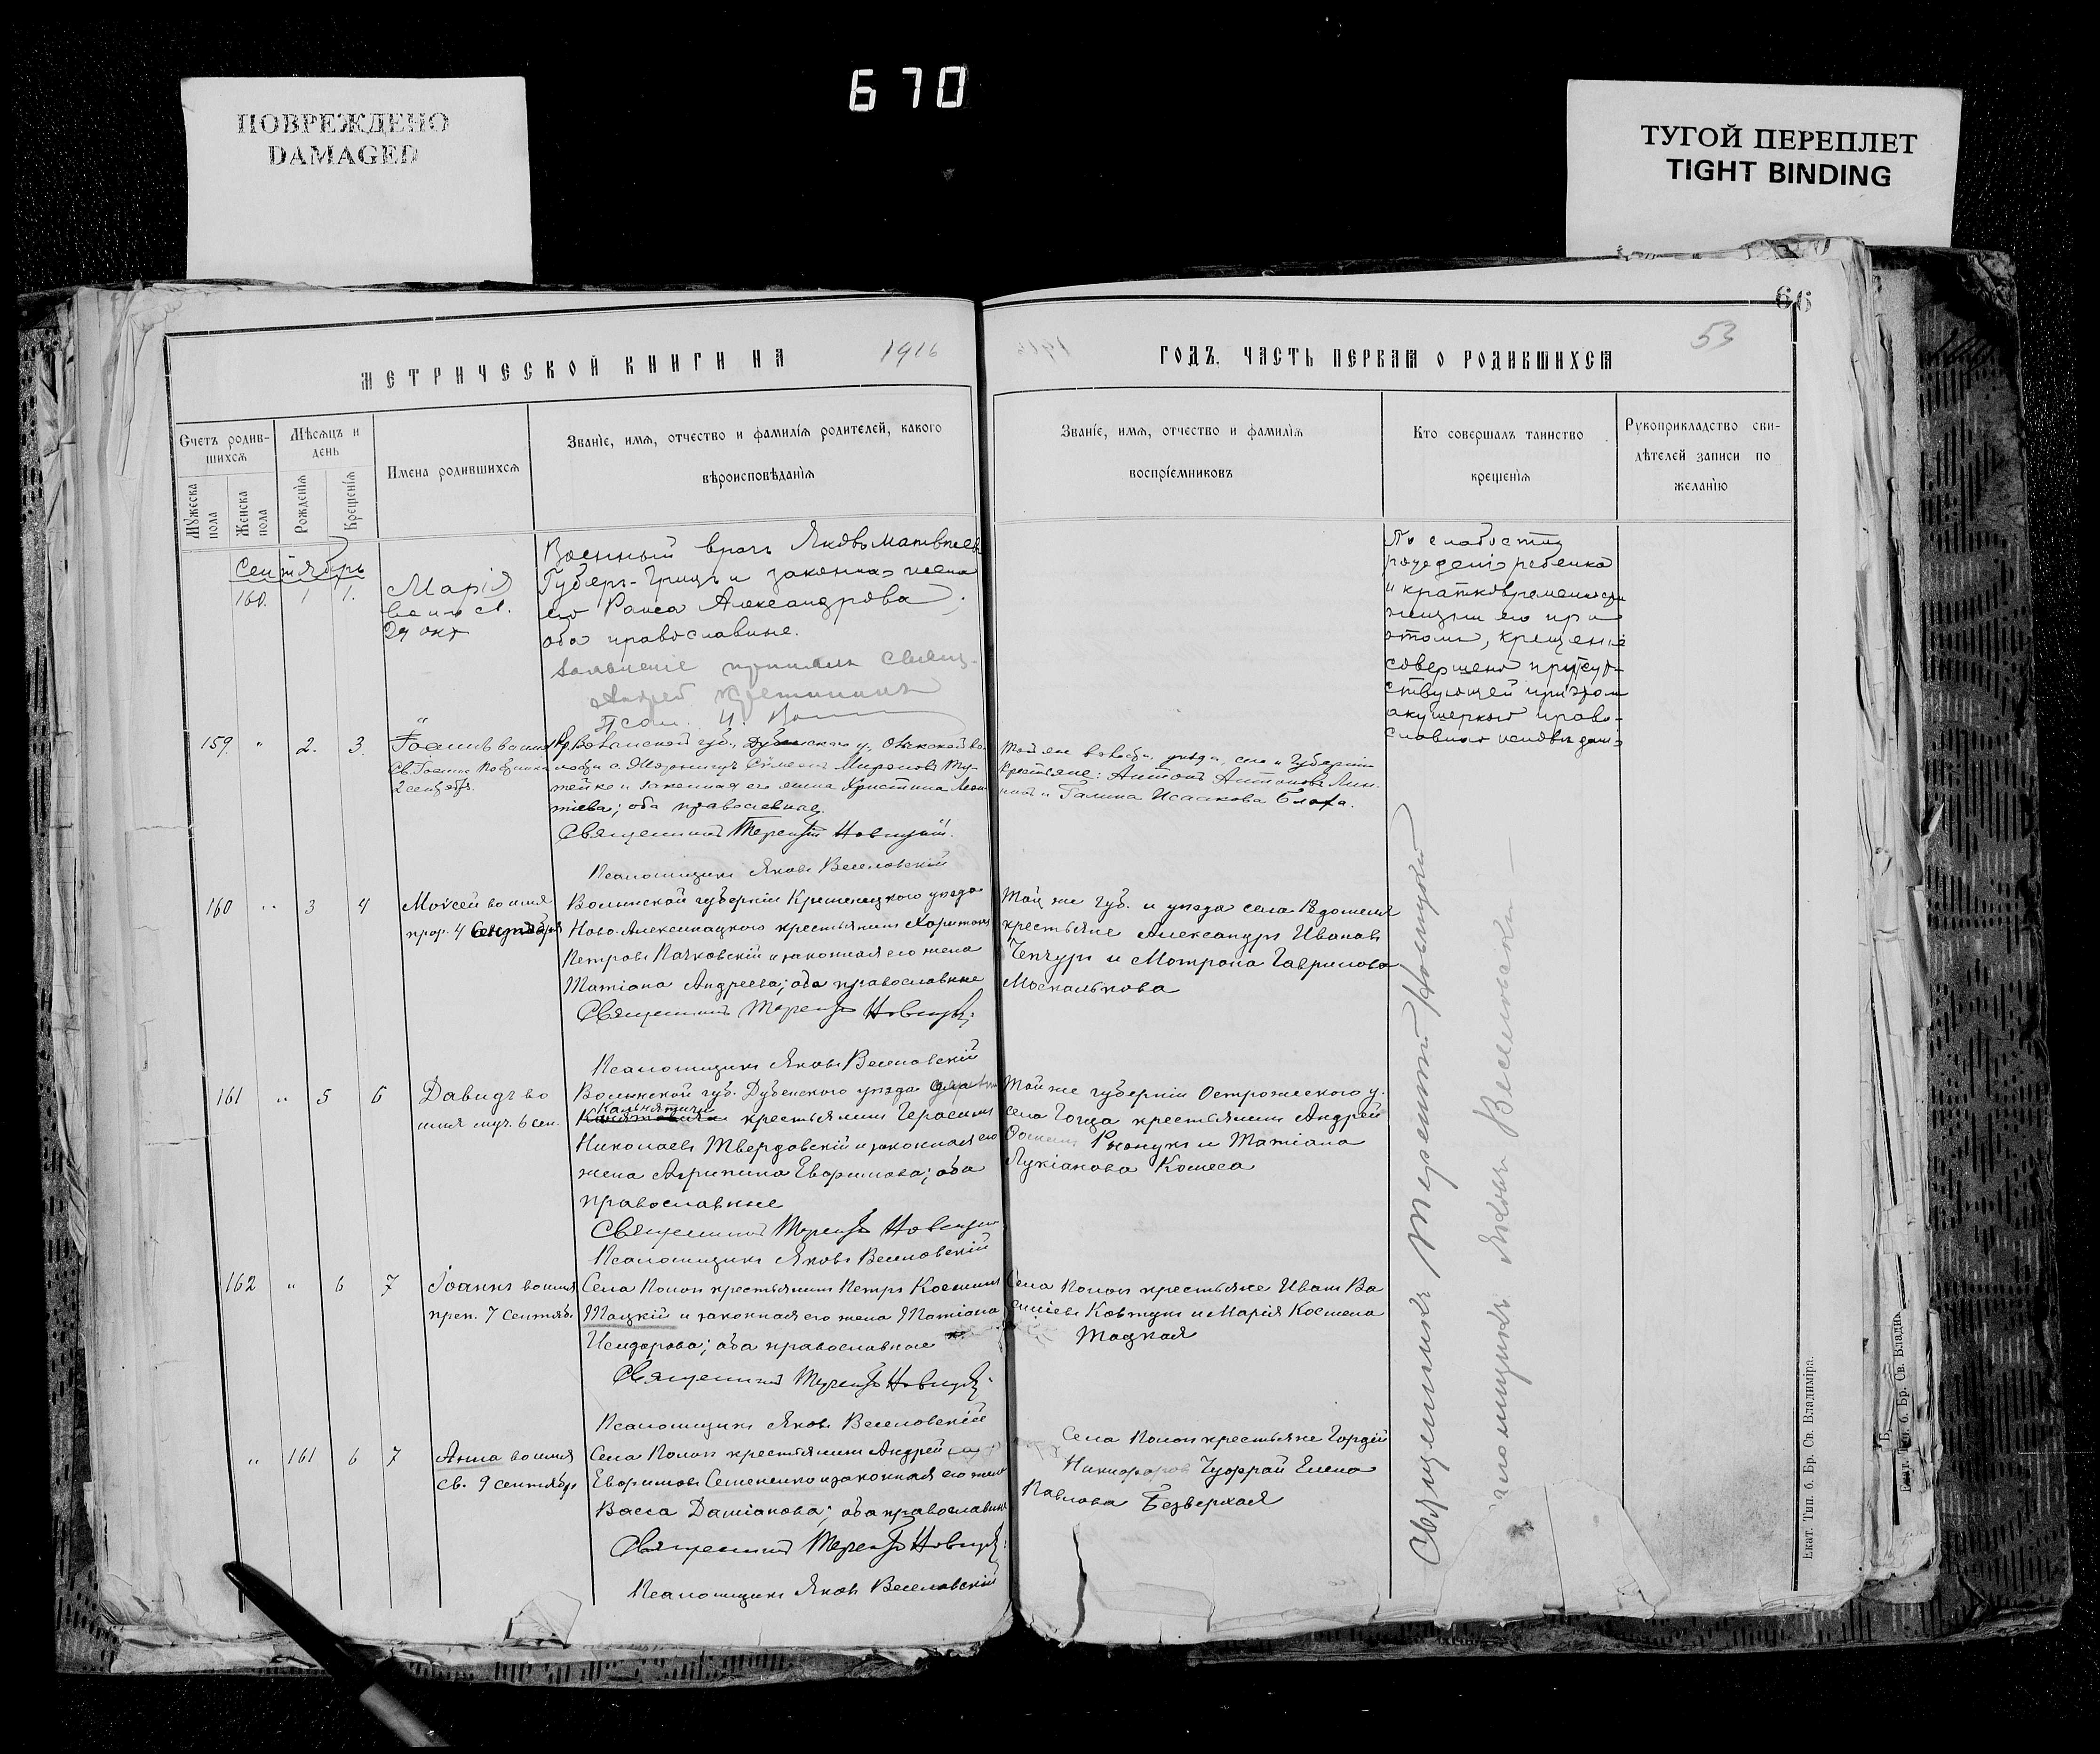 670
ПОВРЕЖДЕНО
DAMAGED
ТУГОЙ ПЕРЕПЛЕТ
TIGHT BINDING
66
53
МЕТРИЧЕСКОЙ КНИГИ НА 1916
ГОДЪ, ЧАСТЬ ПЕРВАЯ О РОДИВШИХСЯ
Счетъ родив-
шихся
Мужеска
пола
Женска
пола
Мѣсяцъ и
день
Рожденія
Крещенія
Имена родившихся
Званіе, имя, отчество и фамилія родителей, какого
вѣроисповѣданія
Званіе, имя, отчество и фамилія
воспріемниковъ
Кто совершалъ таинство
крещенія
Рукоприкладство сви-
дѣтелей записи по
желанію
Сентябрь
160. 1 1.
Марія
29 окт
Военный врачъ Яковъ Матвѣевъ
и законная жена
его Раиса Александрова,
оба православные.
Заявленіе принялъ Священ.
По слабости
ребенка
и кратковременности
жизни его при
этомъ, крещеніе
совершено присут-
ствующей при этомъ
акушеркой право-
славнаго исповѣданія
159. " 2. 3.
Іоаннъ во имя
2 сентябр.
Волынской губ., Дубенскаго у., Олыкской во-
лости с. Симеонъ Мироновъ
и законная его жена Христина Леон-
тіева; оба православные.
Священникъ Терентій Новицкій.
Псаломщикъ Яковъ Веселовскій
Той же волости, уѣзда, села и губерніи
крестьяне: Антонъ Антоновъ
и Галина Исаакова Блоха.
160 " 3 4
Моѵсей во имя
прор. 4 Сентября
Волынской губерніи Кременецкого уѣзда
Ново-Алексинецкого крестьянинъ Харитонъ
Петровъ Пачковскій и законная его жена
Татіана Андреева; оба православные
Священникъ Терентій Новицкій
Псаломщикъ Яковъ Веселовскій
Той же губ. и уѣзда села
крестьяне Александръ Ивановъ
Чепчуръ и Мотрона Гаврилова
Москалькова
161 " 5 6
Давидъ во
имя муч. 6 сен.
Волынской губ. Дубенского уѣзда
крестьянинъ Герасимъ
Николаевъ Твердовскій и законная его
жена Агрипина Евфимова; оба
православные
Священникъ Терентій Новицкій
Псаломщикъ Яковъ Веселовскій
Той же губерніи Острожского у.
села Гоща крестьянинъ Андрей
и Татіана
Лукіанова Комеса
162 " 6 7
Іоаннъ во имя
преп. 7 Сентяб.
Села крестьянинъ Петръ Косминъ
Тацкій и законная его жена Татіана
Исидорова; оба православные
Священникъ Терентій Новицкій
Псаломщикъ Яковъ Веселовскій
Села крестьяне Иванъ Ва-
силіевъ Ковтукъ и Марія Космена
Тацкая
" 161 6 7
Анна во имя
св. 9 сентябр.
Села крестьянинъ Андрей
Евфимовъ Семененко и законная его жена
Васса Даміанова; оба православные
Священникъ Терентій Новицкій
Псаломщикъ Яковъ Веселовскій
Села крестьяне Гордій
Никифоровъ Елена
Павлова Безверхая
Священникъ Терентій Новицкій
Псаломщикъ Яковъ Веселовскій
Екат. Тип. б. Бр. Св. Владиміра.